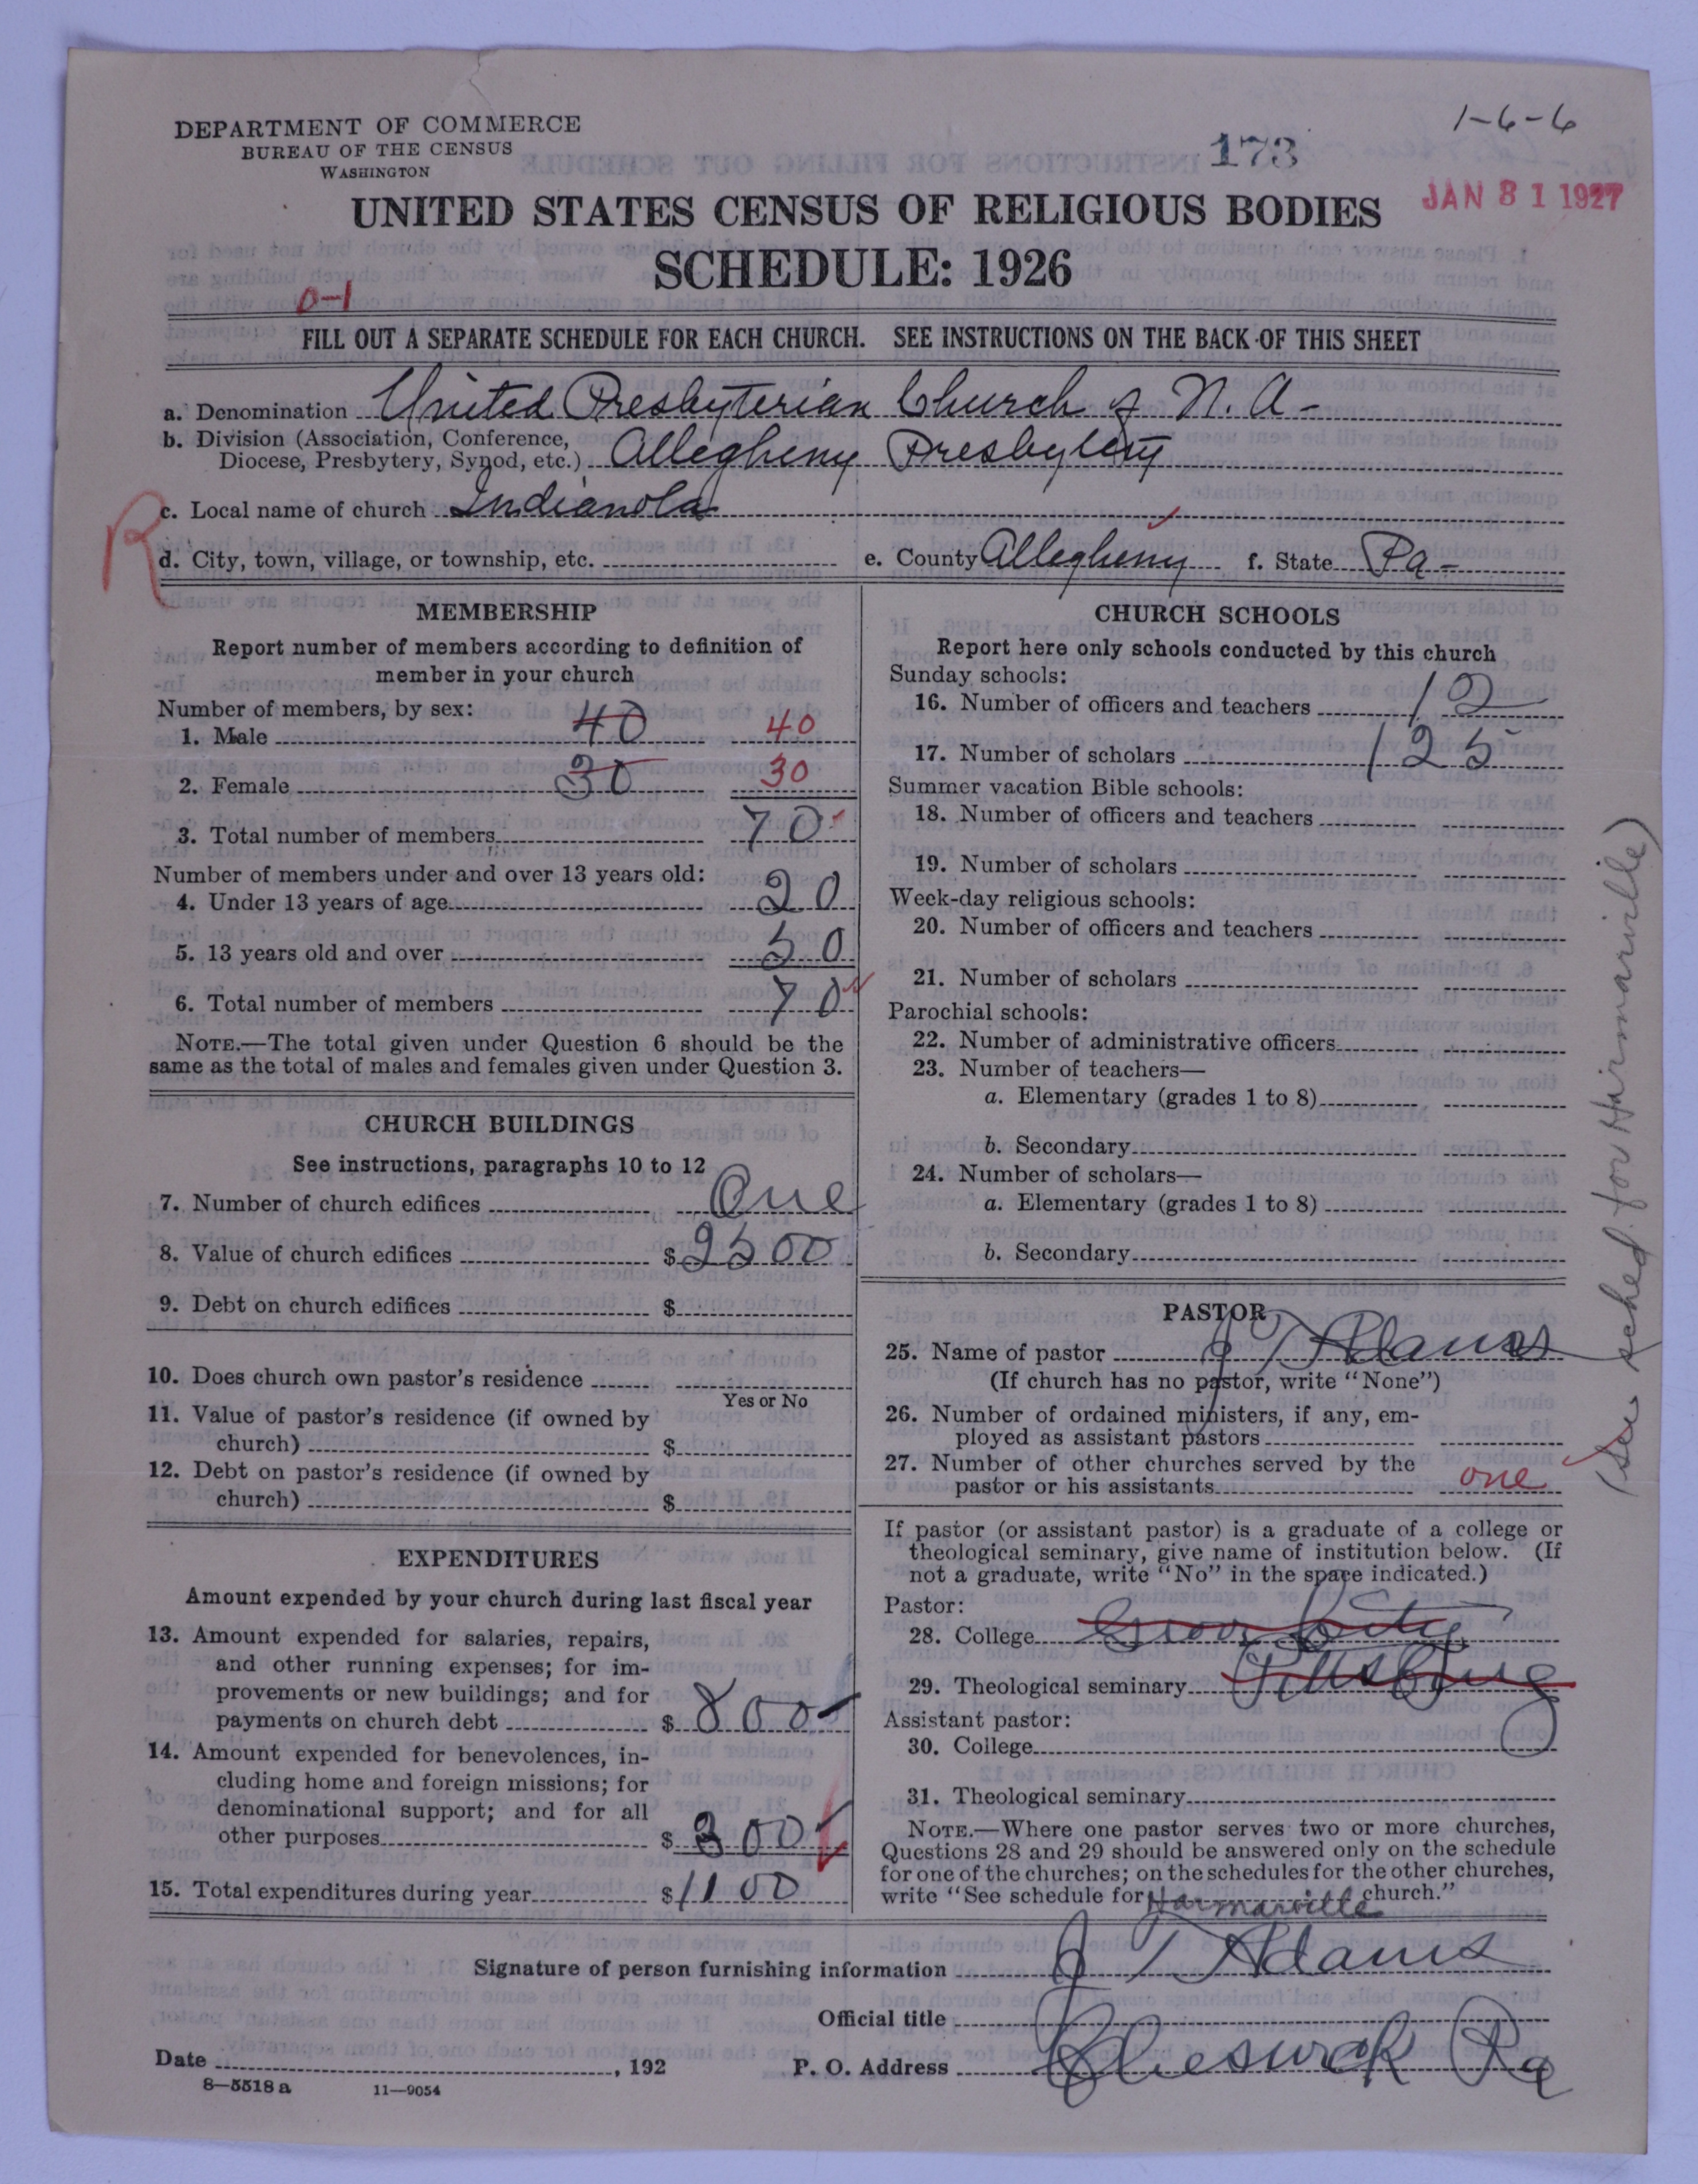 DEPARTMENT OF COMMERCE
BUREAU OF THE CENSUS
WASHINGTON
1-6-6
173
JAN 31 1927
UNITED STATES CENSUS OF RELIGIOUS BODIES
SCHEDULE: 1926
0-1
FILL OUT A SEPARATE SCHEDULE FOR EACH CHURCH. SEE INSTRUCTIONS ON THE BACK OF THIS SHEET
a. Denomination United Presbyterian Church of N.A-
b. Division (Association, Conference,
Diocese, Presbytery, Synod, etc.) Allegheny Presbytery
R
c. Local name of church Indianola
d. City, town, village, or township, etc. e. County Allegheny f. State Pa-
MEMBERSHIP
Report number of members according to definition of
member in your church
Number of members, by sex:
1. Male 40 40
2. Female 30 30
3. Total number of members 70
Number of members under and over 13 years old:
4. Under 13 years of age 20
5. 13 years old and over 50
6. Total number of members 70
NOTE.—The total given under Question 6 should be the
same as the total of males and females given under Question 3.
CHURCH BUILDINGS
See instructions, paragraphs 10 to 12
7. Number of church edifices One
8. Value of church edifices $2500
9. Debt on church edifices $
10. Does church own pastor's residence
Yes or No
11. Value of pastor's residence (if owned by
church) $
12. Debt on pastor's residence (if owned by
church) $
EXPENDITURES
Amount expended by your church during last fiscal year
13. Amount expended for salaries, repairs,
and other running expenses; for im-
provements or new buildings; and for
payments on church debt $800-
14. Amount expended for benevolences, in-
cluding home and foreign missions; for
denominational support; and for all
other purposes $300
15. Total expenditures during year $1100
CHURCH SCHOOLS
Report here only schools conducted by this church
Sunday schools:
16. Number of officers and teachers 12
17. Number of scholars 125
Summer vacation Bible schools:
18. Number of officers and teachers
19. Number of scholars
Week-day religious schools:
20. Number of officers and teachers
21. Number of scholars
Parochial schools:
22. Number of administrative officers
23. Number of teachers—
a. Elementary (grades 1 to 8)
b. Secondary
24. Number of scholars—
a. Elementary (grades 1 to 8)
b. Secondary
PASTOR
25. Name of pastor J T Adams
(If church has no pastor, write "None")
26. Number of ordained ministers, if any, em-
ployed as assistant pastors
27. Number of other churches served by the
pastor or his assistants one
If pastor (or assistant pastor) is a graduate of a college or
theological seminary, give name of institution below. (If
not a graduate, write "No" in the space indicated.)
Pastor:
28. College Grove City
29. Theological seminary Pittsburg
Assistant pastor:
30. College
31. Theological seminary
NOTE.—Where one pastor serves two or more churches,
Questions 28 and 29 should be answered only on the schedule
for one of the churches; on the schedules for the other churches,
write "See schedule for Harmarville church."
(See sched. for Harmarville)
Signature of person furnishing information J T Adams
Official title
Date , 192 P. O. Address Cheswick Pa
8—5518 a 11—9054